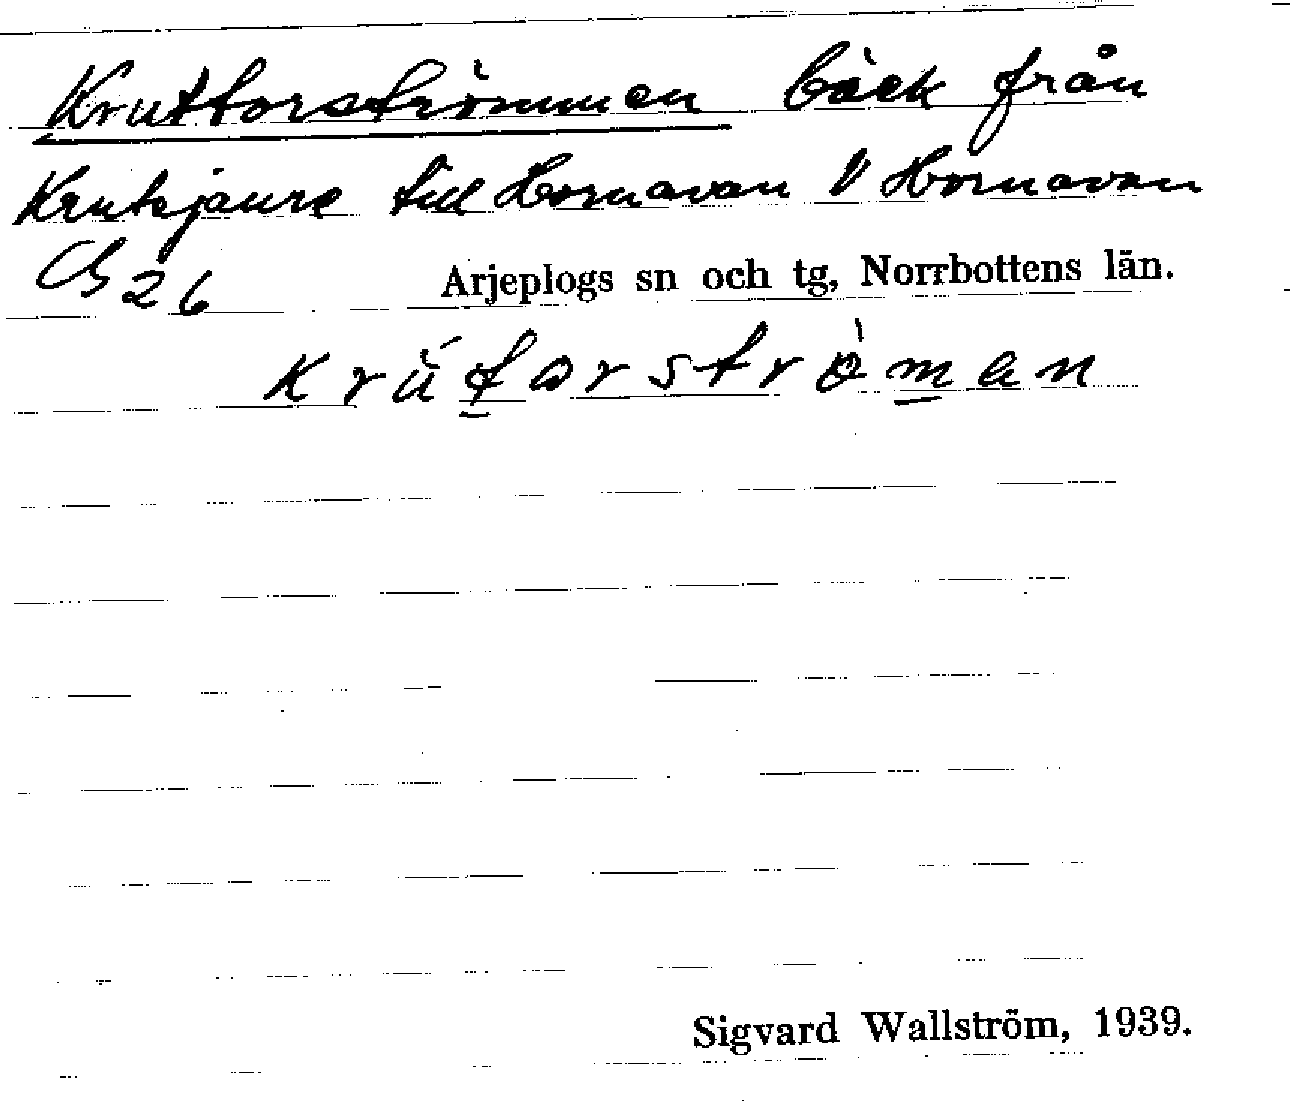 Kruttorströmmen bäck från
Krutsjaure till Hornavan V Hornavan
Cb 26 Arjeplogs sn och tg, Norrbottens län.
krútorstrò̀man
Sigvard Wallström, 1939.